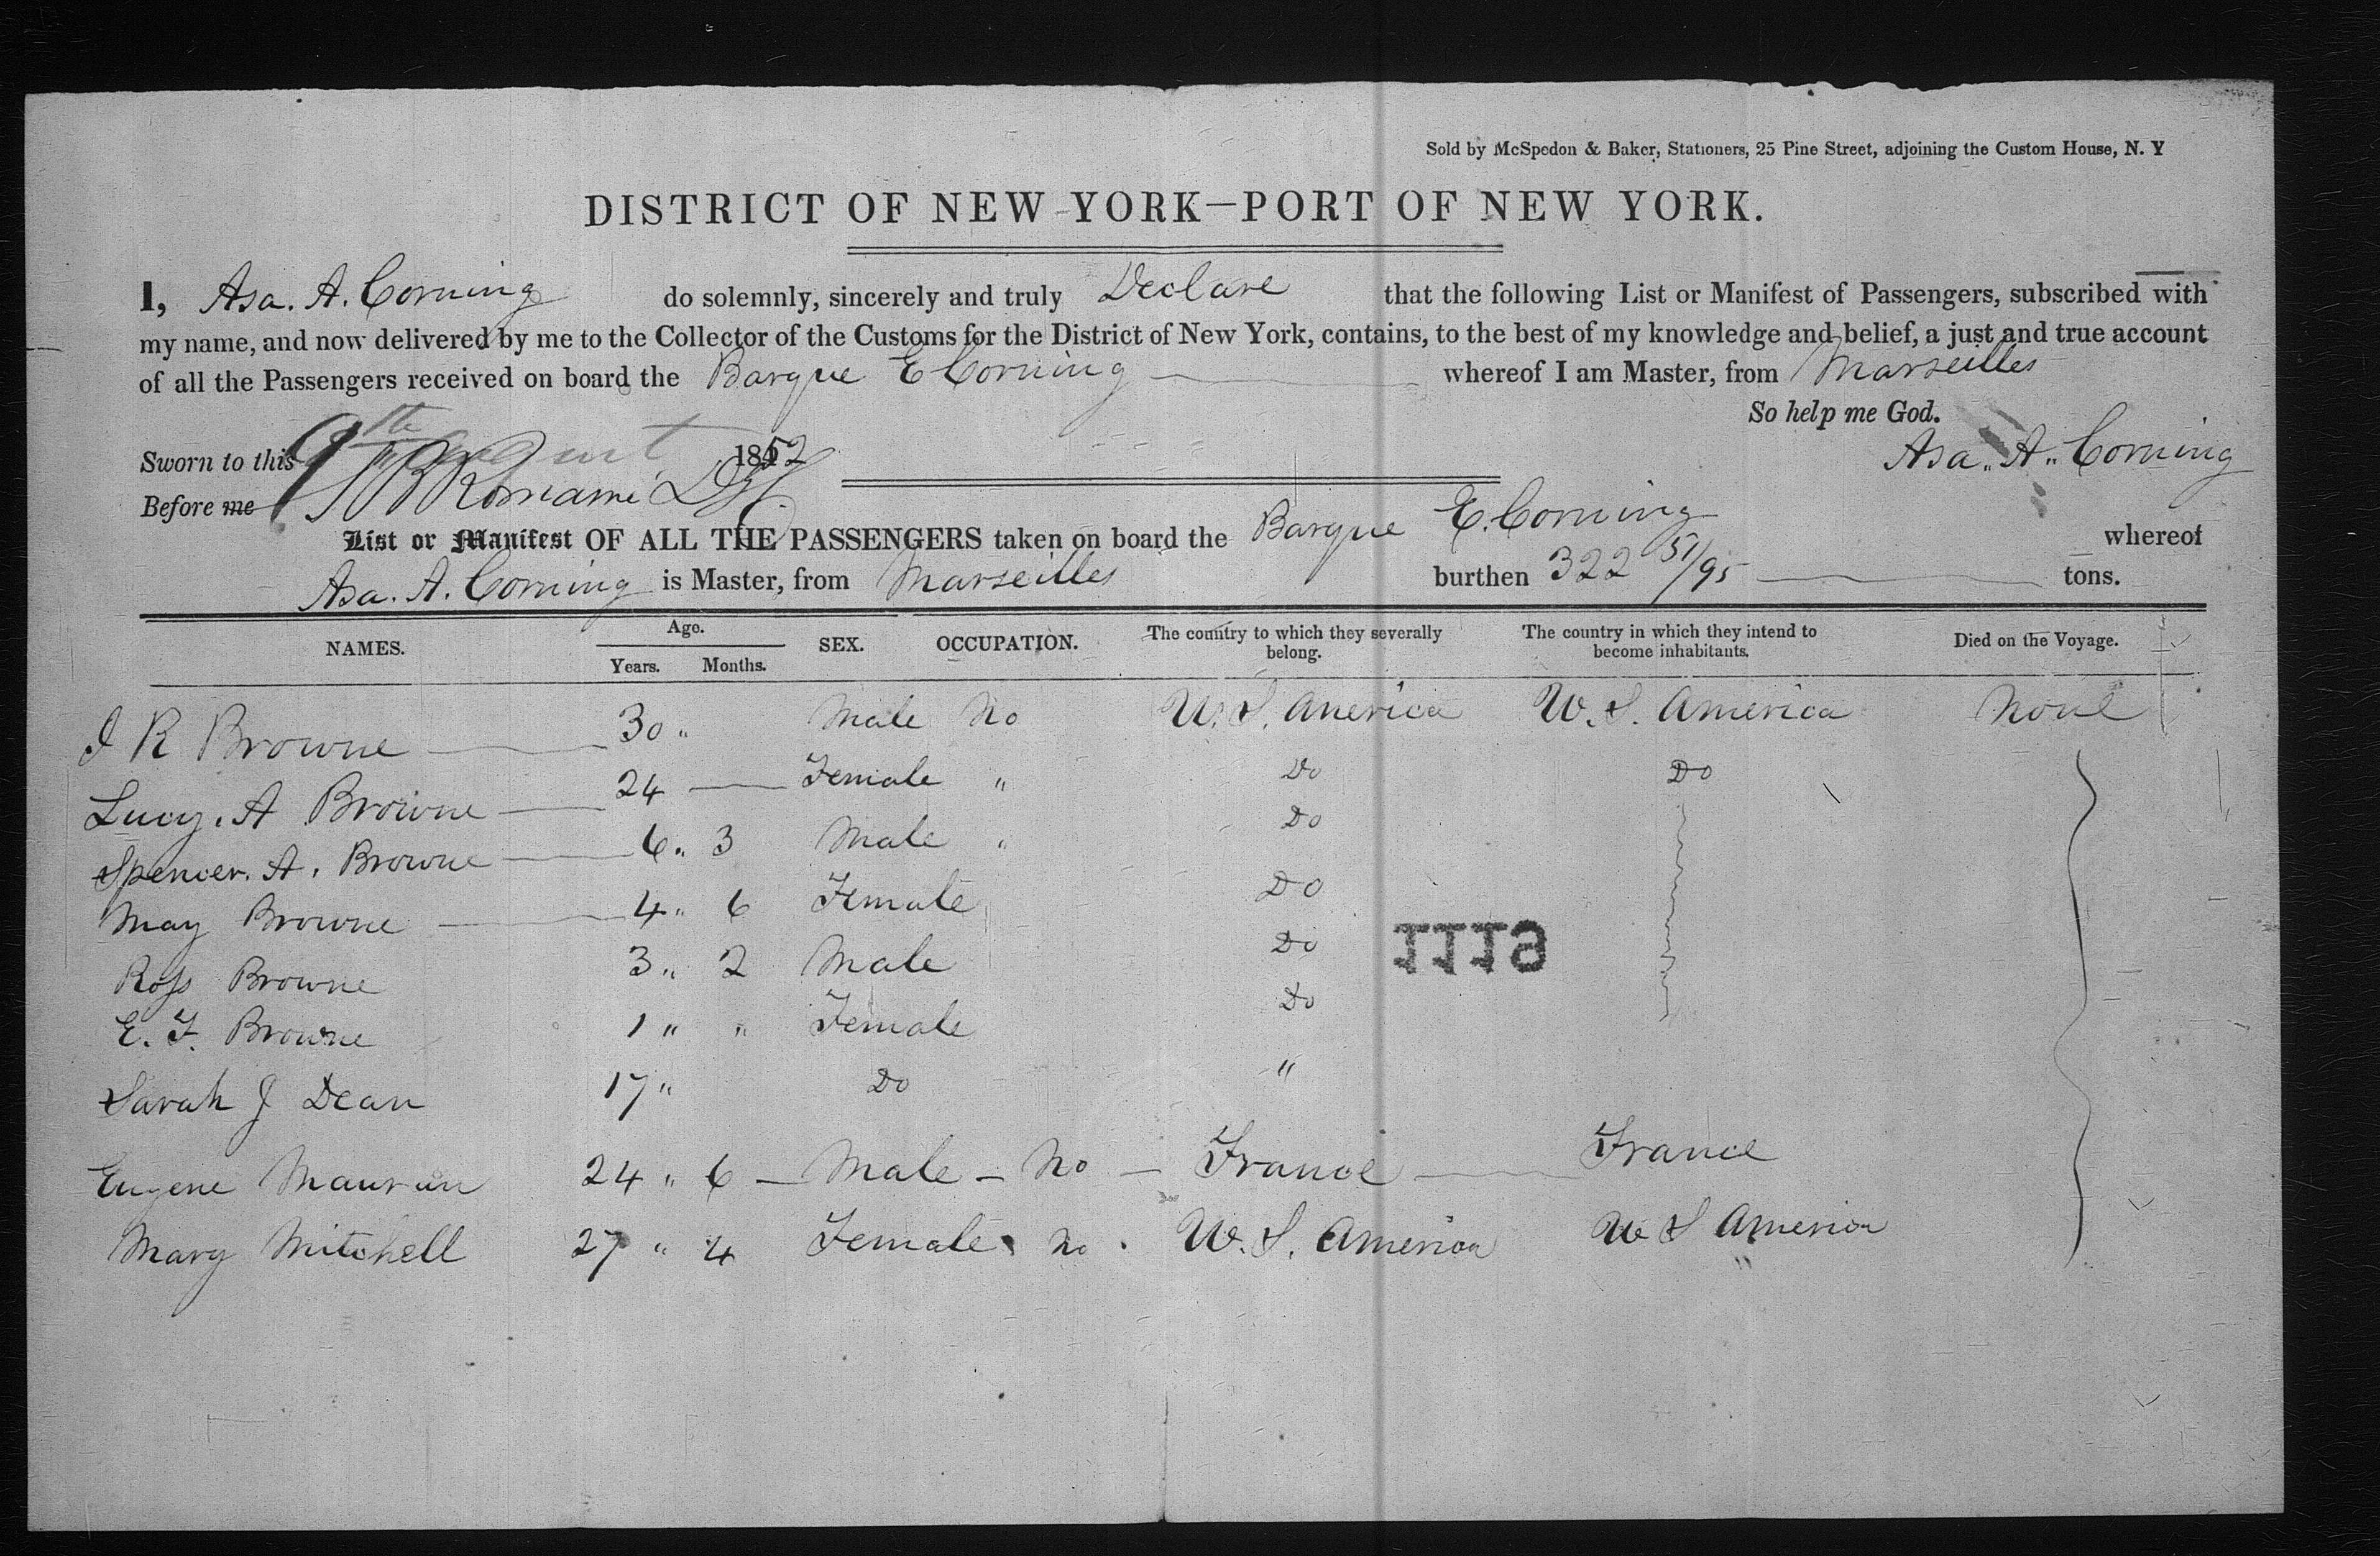 Sold by McSpedon & Baker, Stationers, 25 Pine Street, adjoining the Custom House, N. Y
DISTRICT OF NEW YORK—PORT OF NEW YORK.
I, Asa. A. Corning do solemnly, sincerely and truly Declare that the following List or Manifest of Passengers, subscribed with
my name, and now delivered by me to the Collector of the Customs for the District of New York, contains, to the best of my knowledge and belief, a just and true account
of all the Passengers received on board the Barque E Corning whereof I am Master, from Marseilles
So help me God.
Sworn to this 9th August 1852 Asa. A. Corning
Before me
List or Manifest OF ALL THE PASSENGERS taken on board the Barque E. Corning whereof
Asa. A. Corning is Master, from Marseilles burthen 322 51/95 tons.
NAMES. Age. Years. Months. SEX. OCCUPATION. The country to which they severally belong. The country in which they intend to become inhabitants. Died on the Voyage.
J R Browne 30 " Male No U. S. America U. S. America None
Lucy. A Browne 24 Female " Do Do
Spencer. A. Browne 6 " 3 Male " Do
May Browne 4 " 6 Female Do
Ross Browne 3 " 2 Male Do
E. F. Browne 1 " " Female Do
Sarah J Dean 17 " Do "
Eugene Mauran 24 " 6 Male No France France
Mary Mitchell 27 " 4 Female No U. S. America U S America